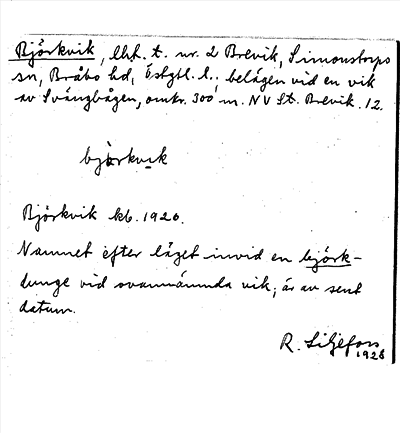 Björkvik, lht. t. nr. 2 Brevik, Simonstorps
sn, Bråbo hd, Östgtl. l.; belägen vid en vik
av Svängbågen, omkr. 300 m. NV St. Brevik. 12.
björkvik
Björkvik kb. 1920.
Namnet efter läget invid en björk-
dunge vid ovannämnda vik; är av sent
datum.
R. Liljefors
1928